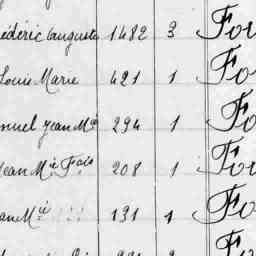 édéric Auguste 1482 3 Fo
Louis Marie 421 1 Fo
nuel Jean Mie 294 1 Fo
Jean Mie Fois 208 1 Fo
an Mie 131 1 Fo
Fo